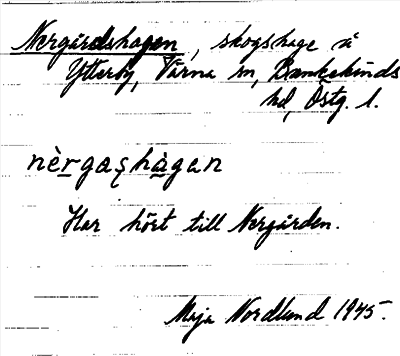 Nergårdshagen, skogshage å
Ytterby, Värna sn, Bankekinds
hd, Östg. l.
nèrgaʂhàgan
Har hört till Nergården.
Maja Nordlund 1945.